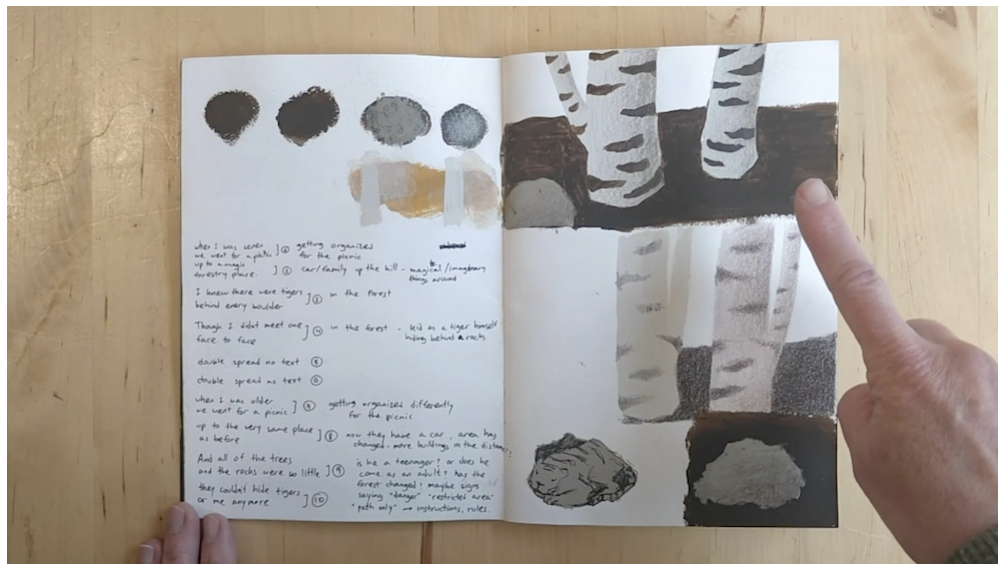 when I was seven
we went for a picnic
up to a magic
forestry place.
] ② getting organized
for the picnic
] ③ car/family up the hill - magical/imaginary
things around
I knew there were tigers
behind every boulder
] ③ in the forest
Though I didnt meet one
face to face
] ④ in the forest - kid as a tiger himself
hiding behind rocks
double spread no text ⑤
double spread no text ⑥
when I was older
we went for a picnic
] ⑦ getting organized differently
for the picnic
up to the very same place
as before
] ⑧ now they have a car, area has
changed - more buildings in the distance?
And all of the trees
and the rocks were so little
] ⑨ is he a teenager? or does he
come as an adult? has the
forest changed? maybe signs
saying "danger" "restricted area"
"path only" → instructions, rules.
they couldn't hide tigers
or me anymore
] ⑩